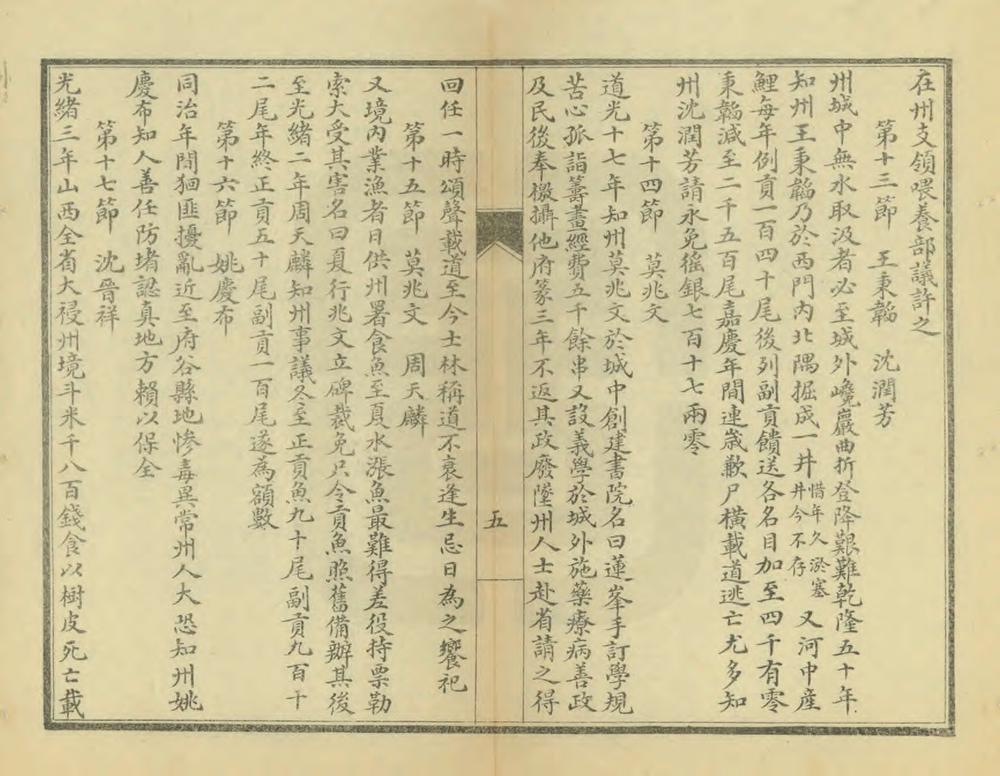 在州支領喂養部議許之
第十三節　王秉韜　沈潤芳
州城中無水取汲者必至城外巉巖曲折登降艱難乾隆五十年
知州王秉韜乃於西門内北隅掘成一井惜年久淤塞井今不存又河中産
鯉每年例貢一百四十尾後列副貢饋送各名目加至四千有零
秉韜減至二千五百尾嘉慶年間連歲歉尸橫載道逃亡尤多知
州沈潤芳請永免徭銀七百十七兩零
第十四節　莫兆文
道光十七年知州莫兆文於城中創建書院名曰蓮峯手訂學規
苦心孤詣籌畫經費五千餘串又設義學於城外施藥療病善政
及民後奉檄攝他府篆三年不返其政廢墜州人士赴省請之得
五
回任一時頌聲載道至今士林稱道不衰逢生忌日為之饗祀
第十五節　莫兆文　周天麟
又境内業漁者日供州署食魚至夏水漲魚最難得差役持票勒
索大受其害名曰夏行兆文立碑裁免只令貢魚照舊備辦其後
至光緒二年周天麟知州事議冬至正貢魚九十尾副貢九百十
二尾年終正貢五十尾副貢一百尾遂為額數
第十六節　姚慶布
同治年間狪匪擾亂近至府谷縣地慘毒異常州人大恐知州姚
慶布知人善任防堵認真地方賴以保全
第十七節　沈晉祥
光緒三年山西全省大祲州境斗米千八百錢食以樹皮死亡載